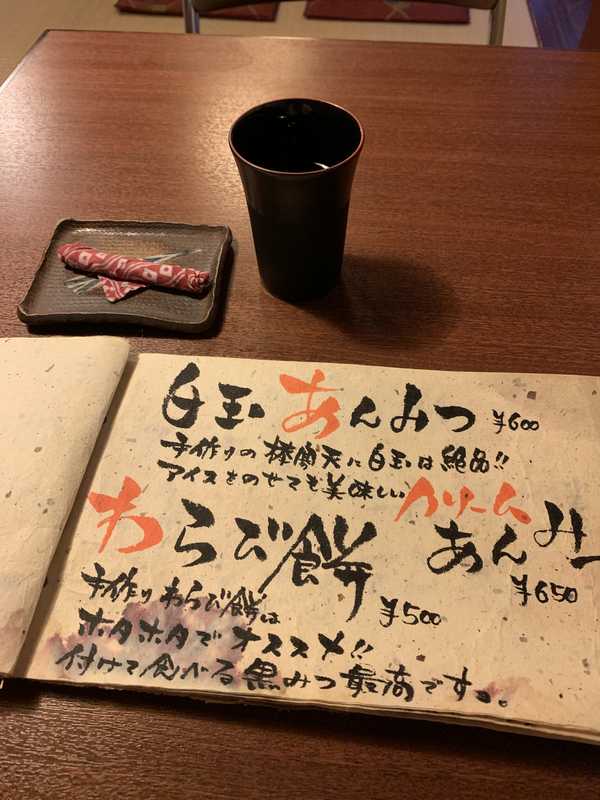 白玉 あんみつ ¥600
手作りの棒寒天に白玉は絶品!!
アイスをのせても美味しい
クリーム
あんみ
¥650
わらび餅
¥500
手作りわらび餅は
ホタホタでオススメ!!
付けて食べる黒みつ最高です。